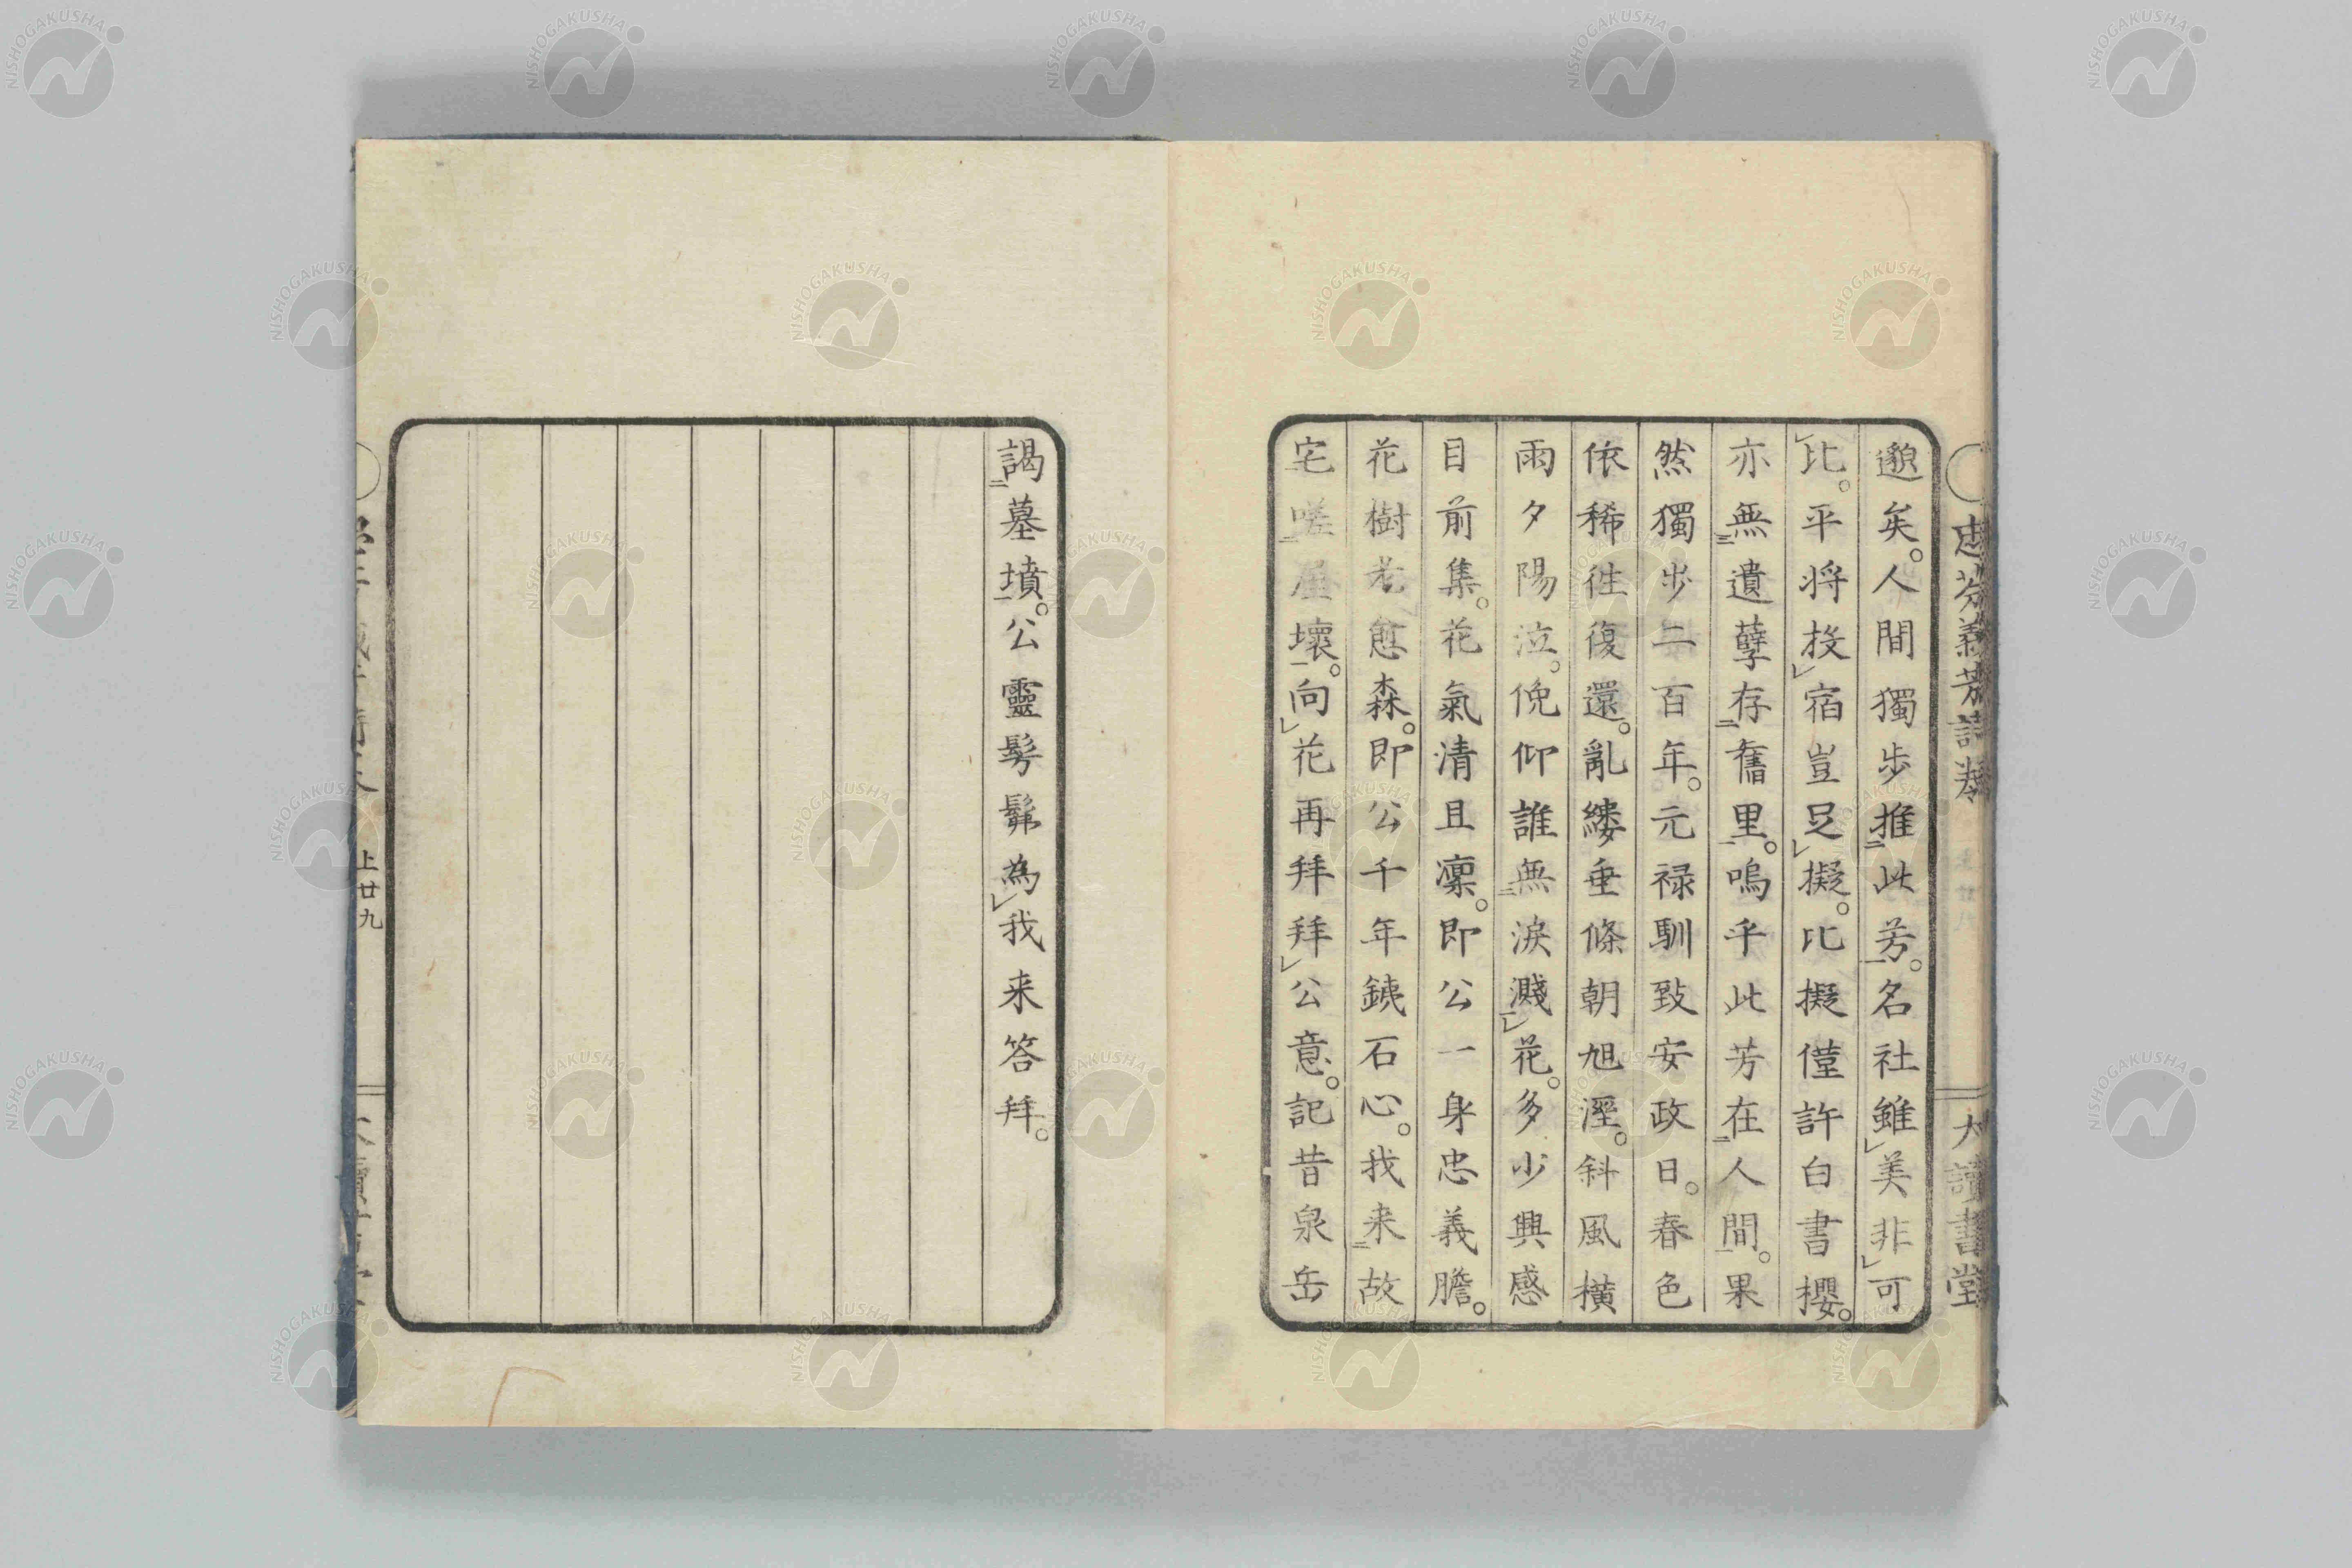 邈矣。人間獨步推此芳。名社雖美非可
比。平将投宿豈足擬。比擬僅許白書櫻。
亦無遺孽存舊里。嗚乎此芳在人間。果
然獨步二百年。元禄馴致安政日。春色
依稀往復還。亂縷垂條朝旭溼。斜風橫
雨夕陽泣。俛仰誰無淚濺花。多少興感
目前集。花氣清且凛。即公一身忠義膽。
花樹老愈森。即公千年鐵石心。我来故
宅嗟屋壞。向花再拜拜公意。記昔泉岳
謁墓墳。公靈髣髴為我来答拜。
忠芬義芳詩巻
大讀書堂
上廿九
NISHOGAKUSHA